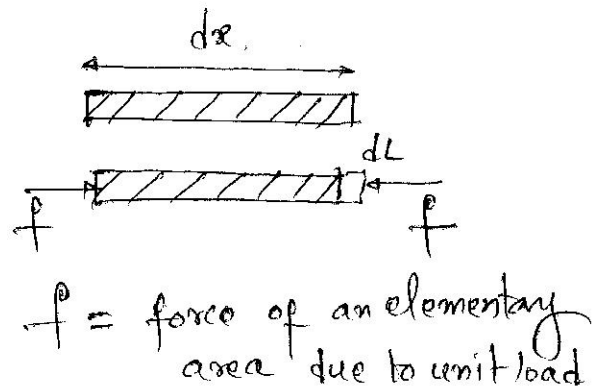 dx.
dL
f
f
f = force of an elementary
area due to unit load